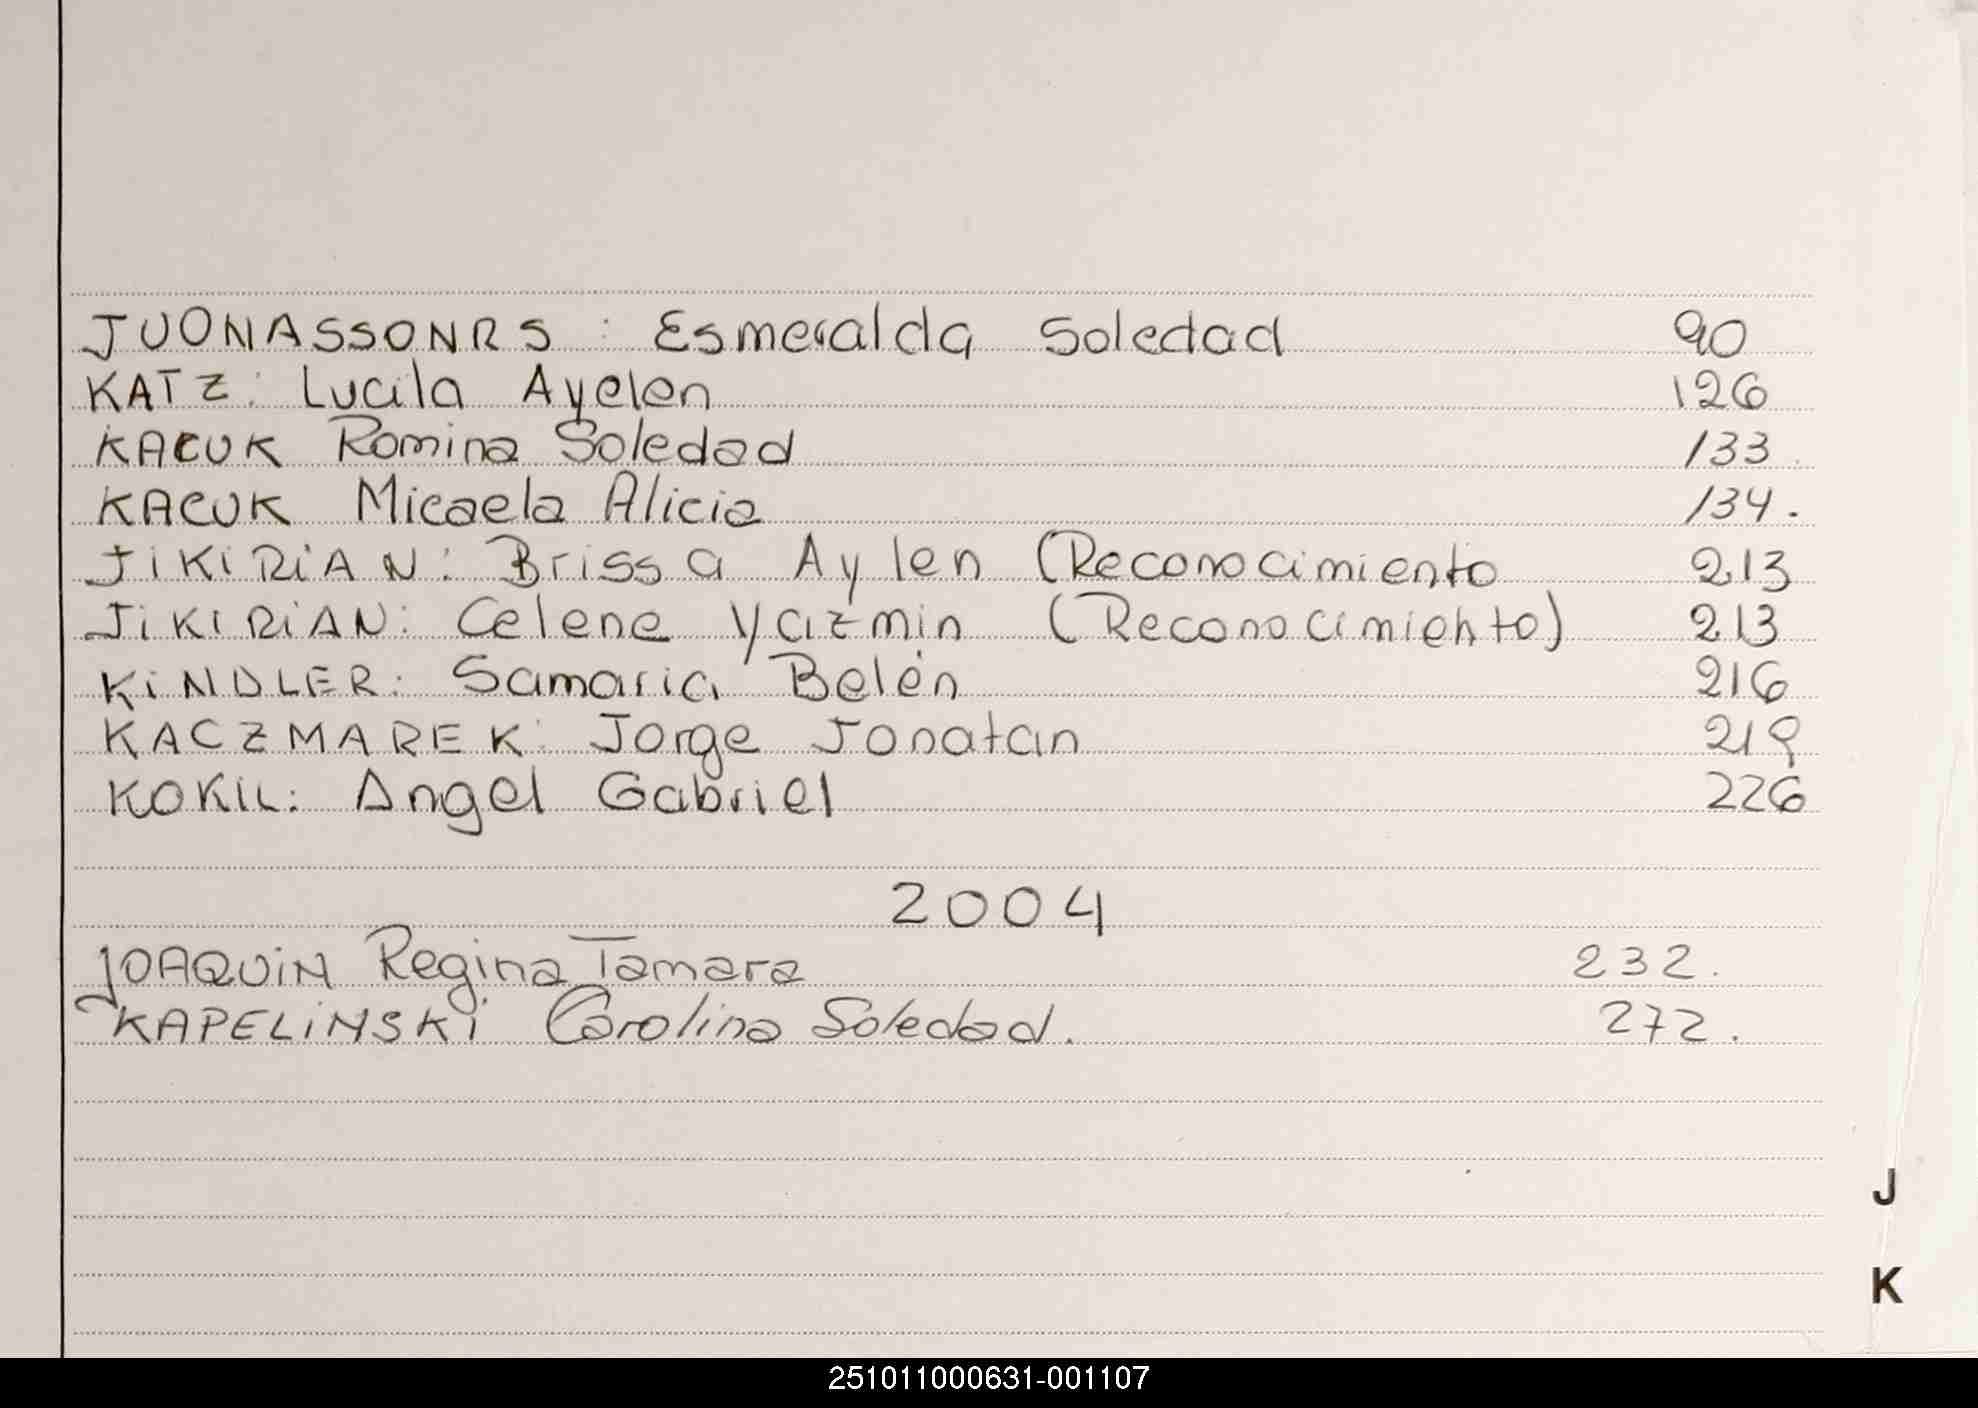 JUONASSONRS : Esmeralda Soledad 90
KATZ: Lucila Ayelen 126
KACUK Romina Soledad 133
KACUK Micaela Alicia 134.
JIKIRIAN: Brissa Aylen (Reconocimiento 213
JIKIRIAN: Celene Yazmin (Reconocimiento) 213
KINDLER: Samaria Belén 216
KACZMAREK: Jorge Jonatan 219
KOKIL: Angel Gabriel 226
2004
JOAQUIN Regina Tamara 232.
KAPELINSKI Carolina Soledad. 272.
J
K
251011000631-001107